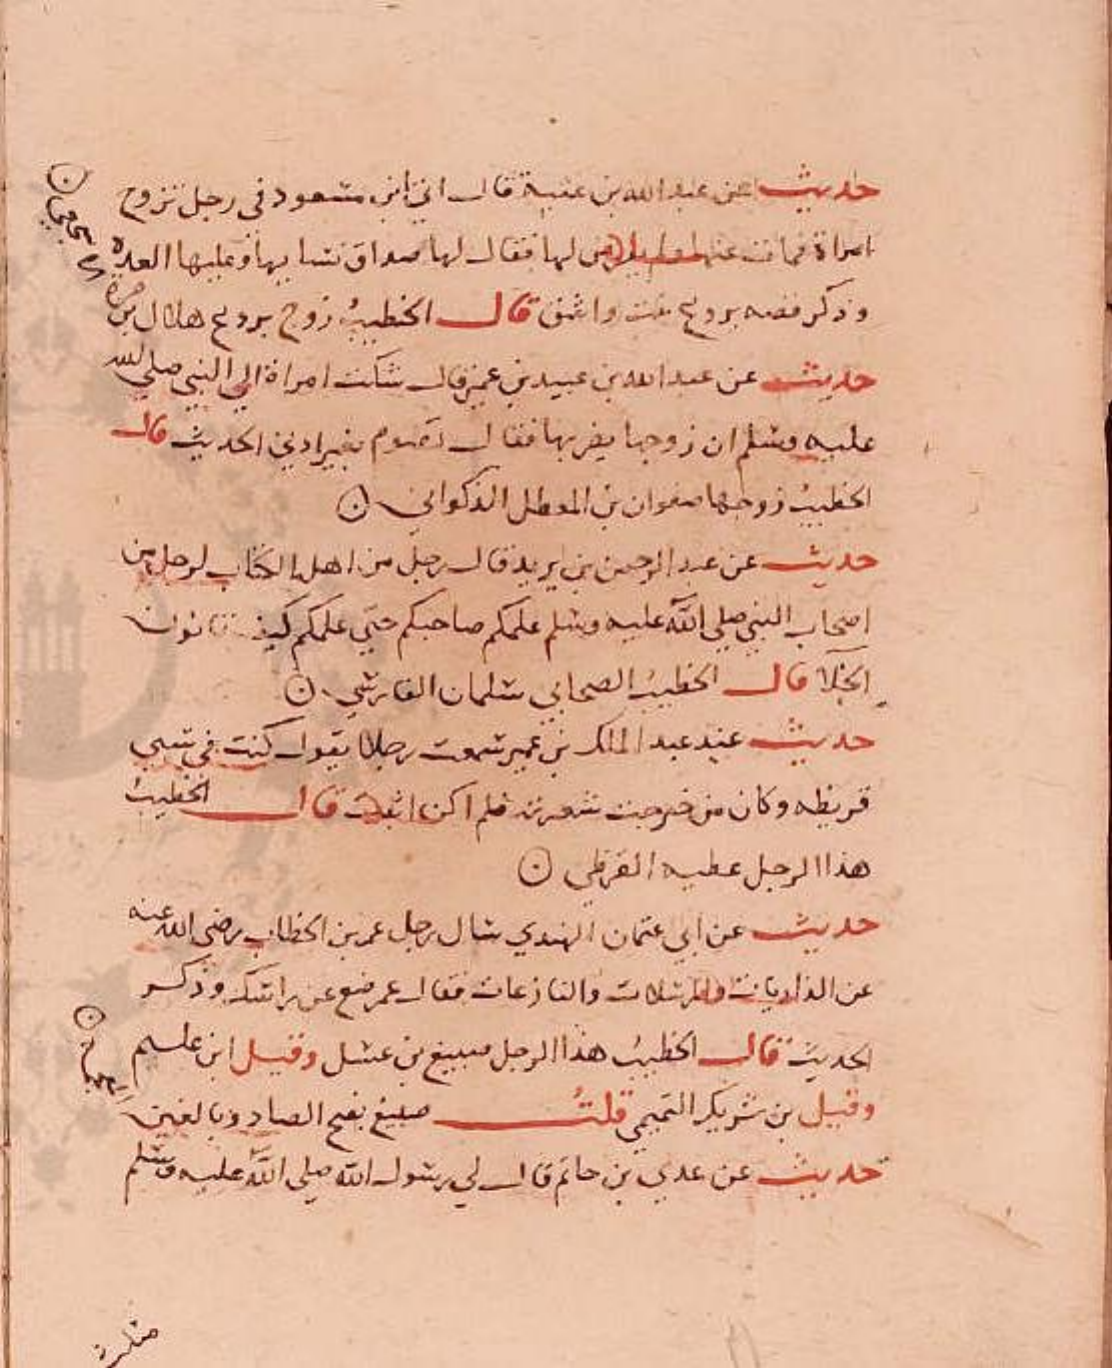 حديث عن عبد الله بن عتبة قال اتي ابن مسعود في رجل تزوج
امراة فمات عنها ولم يفرض لها فقال لها صداق نسايها وعليها العدة
وذكر قصه بروع بنت واشق قال الخطيب زوج بروع هلال بن مرة
الاشجعي
حديث عن عبد الله بن عبيد بن عمير قال شكت امراة الي النبي صلي الله
عليه وسلم ان زوجها يضربها فقال تصوم بغير اذني الحديث قال
الخطيب زوجها صفوان بن المعطل الذكواني
حديث عن عبد الرحمن بن يزيد قال رجل من اهل الكتاب لرجل من
اصحاب النبي صلي الله عليه وسلم علمكم صاحبكم حتي علمكم كيف تاتون
الخلا قال الخطيب الصحابي سلمان الفارسي
حديث عبد الملك بن عمير سمعت رجلا يقول كنت في سبي
قريظه وكان من خرجت شعرته فلم اكن انبت قال الخطيب
هذا الرجل عطيه القرظي
حديث عن ابي عثمان النهدي سال رجل عمر بن الخطاب رضي الله عنه
عن الذاريات والمرسلات والنازعات فقال عمر ضع عن راسك وذكر
الحديث قال الخطيب هذا الرجل صبيغ بن عسل وقيل ابن عليم
وقيل بن شريك التميمي قلت صبيغ بفتح الصاد وبالغين
المعجمة
حديث عن عدي بن حاتم قال لي رسول الله صلي الله عليه وسلم